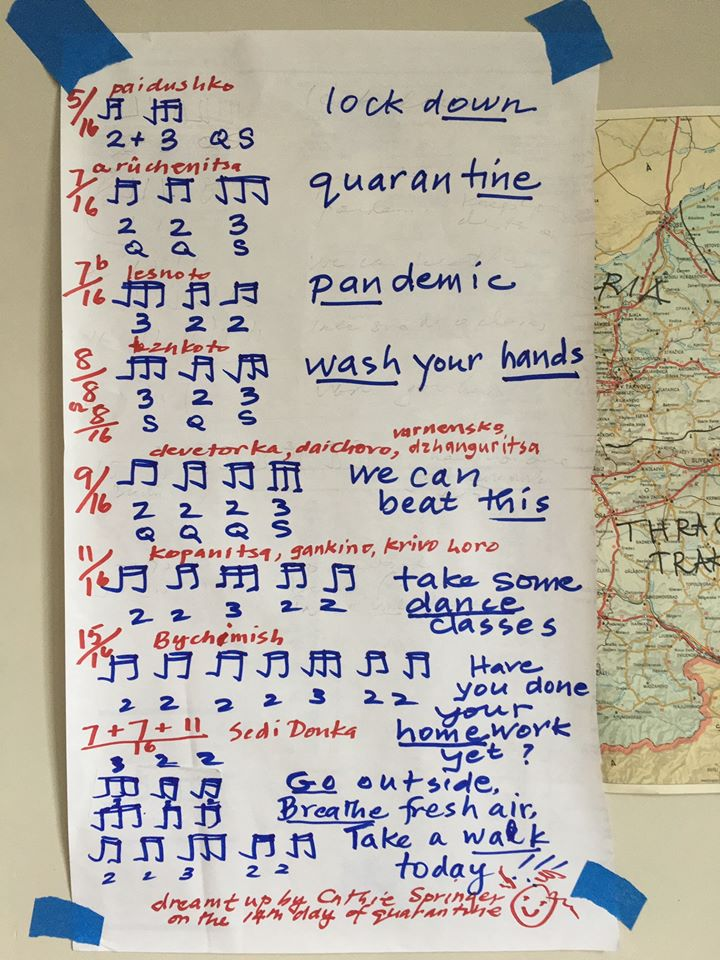 paidushko
5/16
2 + 3 Q S
lock down
rûchenitsa
7/16
2 2 3
Q Q S
quarantine
7b/16 lesnoto
3 2 2
pandemic
8/8
8/16
3 2 3
S Q S
wash your hands
devetorka, daichovo, varnensko, dzhanguritsa
9/16
2 2 2 3
Q Q Q S
we can
beat this
11/16 kopanitsa, gankino, krivo horo
2 2 3 2 2
take some
dance
classes
15/16 Bychemish
2 2 2 2 3 2 2
Have
you done
your
homework
yet?
7 + 7 + 11
16
Sedi Donka
3 2 2
Go outside,
Breathe fresh air,
Take a walk
today!!!
2 2 3 2 2
dreamt up by Cathie Springer
on the 14th day of quarantine
THRAC
TRA